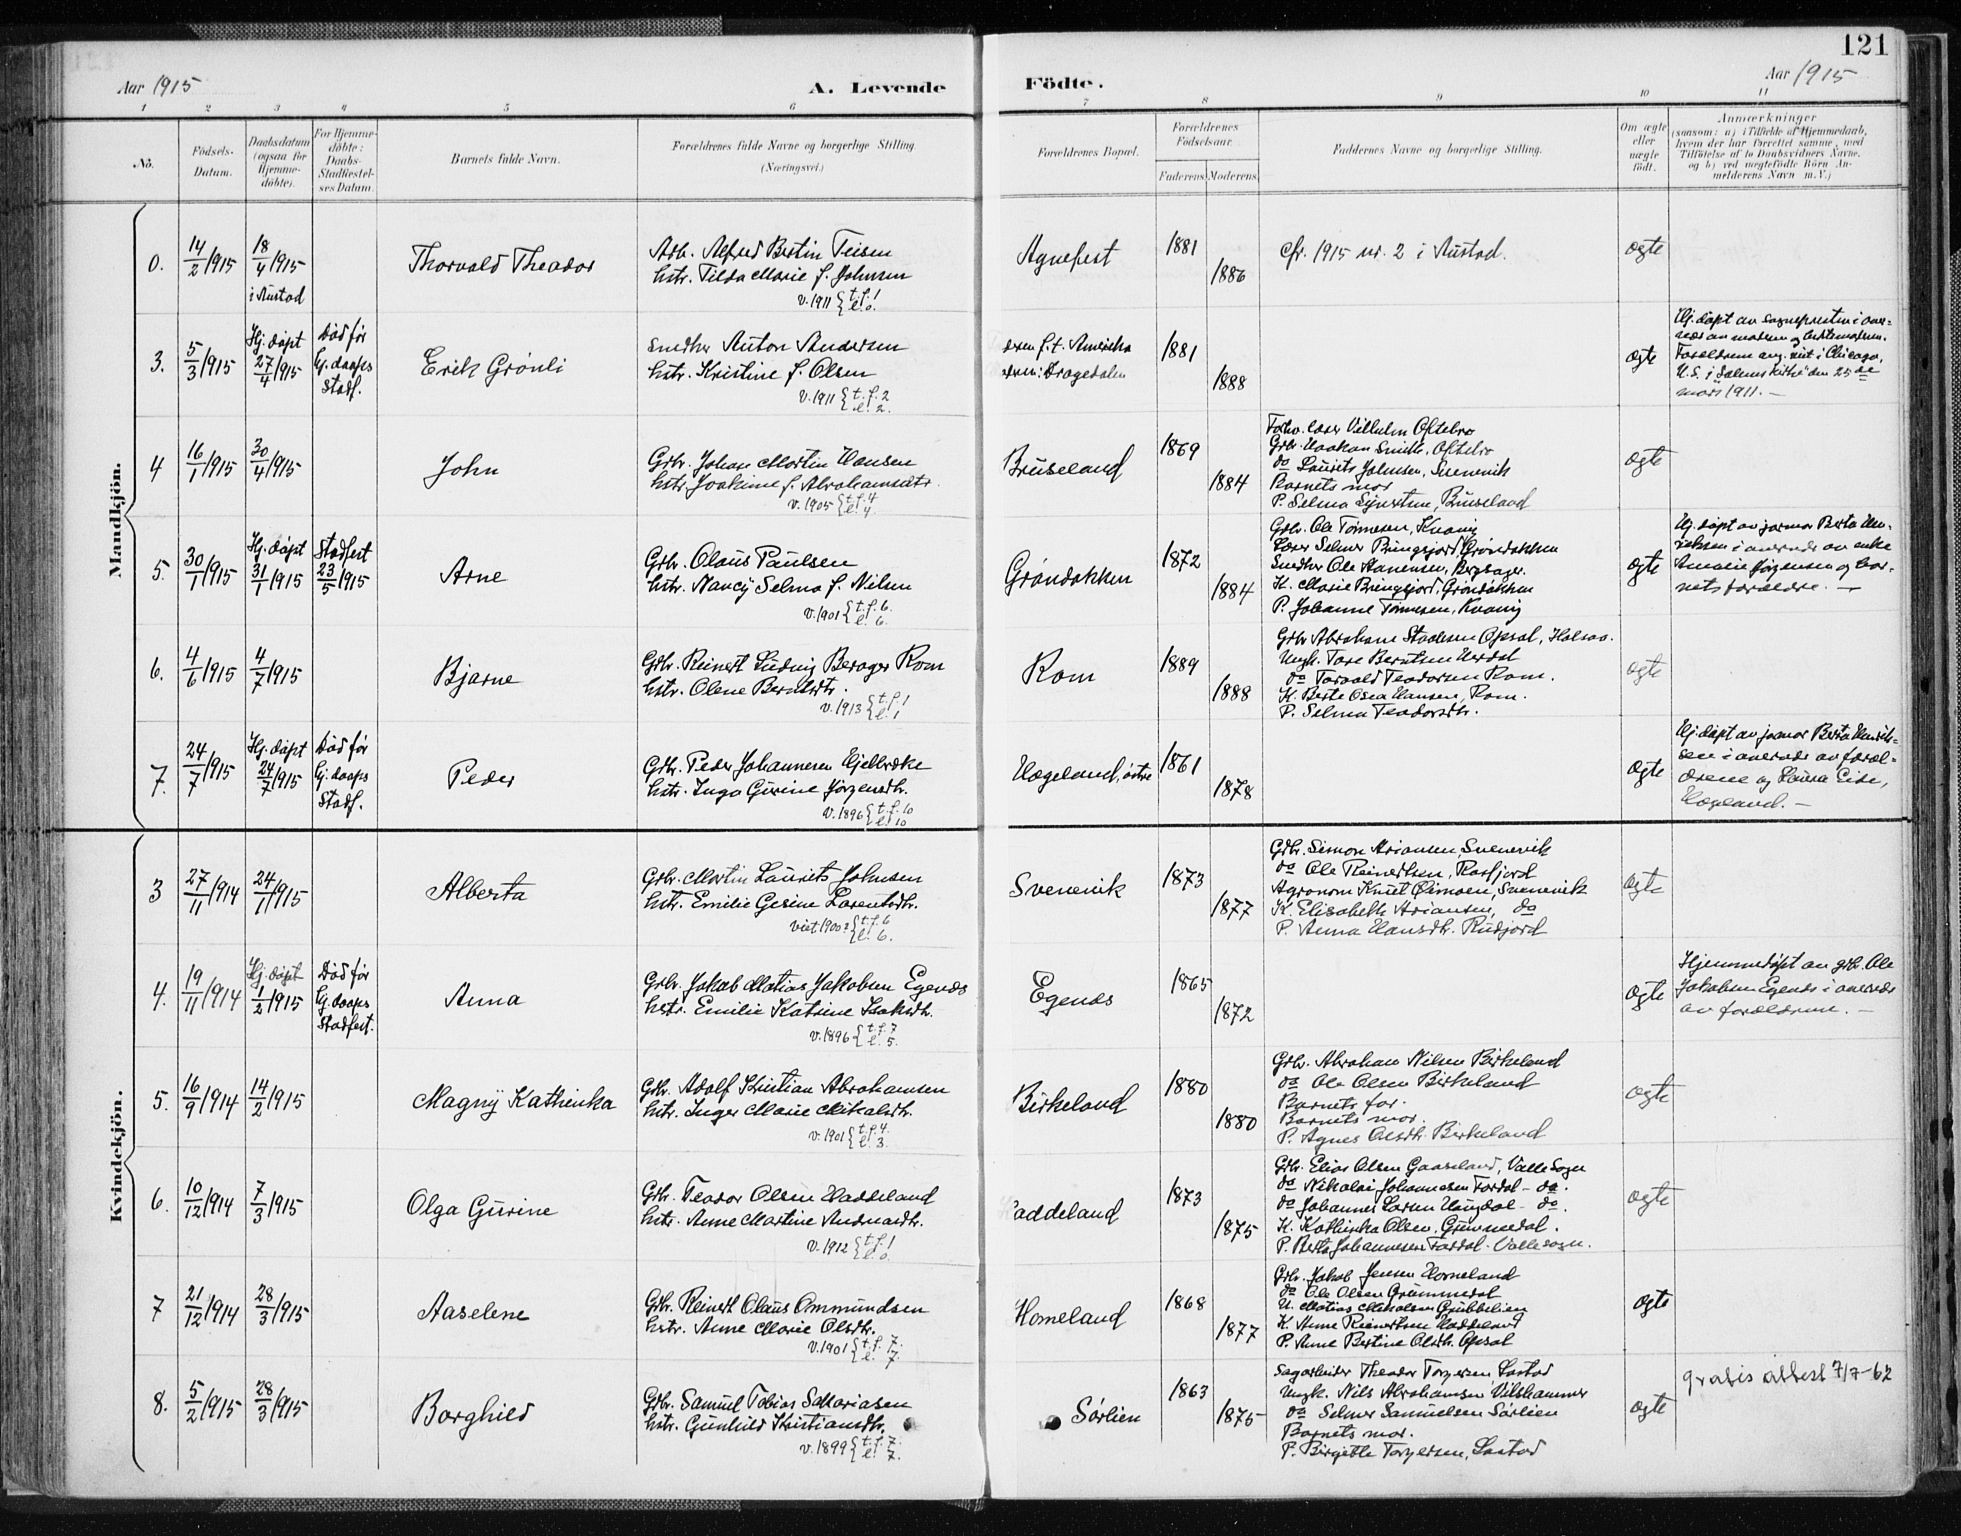 121
Aar 1915
A. Levende Födte.
Aar 1915
1 2 3 4 5 6 7 8 9 10 11
No.
Födsels-Datum.
Daabsdatum (ogsaa for Hjemme-döbte).
For Hjemme-döbte: Daabs-Stadfæstel-ses Datum.
Barnets fulde Navn.
Forældrenes fulde Navne og borgerlige Stilling.
(Næringsvei.)
Forældrenes Bopæl.
Forældrenes Födselsaar.
Faderens. Moderens.
Faddernes Navne og borgerlige Stilling.
Om ægte eller uægte födt.
Anmærkninger
(saasom: a) i Tilfælde af Hjemmedaab,
hvem der har forrettet samme, med
Tilföielse af to Daabsvidners Navne,
og b) ved uægtefödte Börn An-
melderens Navn m.V.)
Mandkjön.
0. 14/2 1915 18/4 1915 i Austad
Thorvald Theodor
Arb. Alfred Bertin Teisen
hstr. Tilda Marie f. Johnsen
v. 1911 { t.f. 1 l. 0.
Agnefest
1881
1886
cfr. 1915 nr. 2 i Austad.
ægte
3. 5/3 1915 Hj. døpt 27/4 1915 Død før Hj. daaps Stadf.
Erik Grønli
Snedker Anton Andersen
hstr. Kristine f. Olsen
v. 1911 { t.f. 2 l. 2.
f.t. Amerika
Dragedalen
1881
1888
ægte
Hj. døpt av sogneprestin i over-
Forældrene ang. viet i Chicago,
U.S. i Salems kirke den 25de
mars 1911. —
4 16/1 1915 30/4 1915
John
Grbr. Johan Martin Hansen
hstr. Joakime f. Abrahamsdtr.
v. 1905 { t.f. 4 l. 4.
Bruseland
1869
1884
Vilhelm Oftebro
Grbr. Haakon Smith, Oftebro
do Laurits Johnsen, Svenevik
Barnets mor
P. Selma Syvertsen, Bruseland
ægte
5. 30/1 1915 Hj. døpt 31/1 1915 Stadfest 23/5 1915
Arne
Grbr. Olaus Paulsen
hstr. Nancy Selma f. Nilsen
v. 1901 { t.f. 6. l. 6.
Grøndokken
1872
1884
Grbr. Ole Tønnesen, Kvavig
Selmer Bringsjord, Grøndokken
Snedker Ole Hanensen, Bergsager.
K. Marie Bringsjord, Grøndokken
P. Johanne Tønnesen, Kvavig
ægte
Hj. døpt av jormor Berta Hen-
riksen i overvær av enke
Amalie Jørgensen og bar-
nets forældre. —
6. 4/6 1915 4/7 1915
Bjarne
Grbr. Reinert Ludvig Berager Rom
hstr. Olene Berntsdtr.
v. 1913 { t.f. 1 l. 1
Rom
1889
1888
Grbr Abraham Staalesen Opsal, Halsaa.
Ungk. Tore Berntsen Urdal
do Torvald Teodorsen Rom.
K. Berte Osea Hansen, Rom.
P. Selma Teodorsdtr.
ægte
7. 24/7 1915 Hj. døpt 24/7 1915 Død før Hj. daaps Stadf.
Peder
Grbr. Peder Johannesen Hjelbrække
hstr. Inga Gurine Jørgensdtr.
v. 1896 { t.f. 10 l. 10
Hægeland, østre
1861
1878
ægte
Hj. døpt av jormor Berta Henrik-
sen i overvær av foræl-
drene og Laura Eide,
Hægeland. —
Kvindekjön.
3 27/11 1914 24/1 1915
Alberta
Grbr. Martin Laurits Johnsen
hstr. Emilie Gesine Larentsdtr.
viet 1900? { t.f. 6 l. 6.
Svenevik
1873
1877
Grbr. Simon Ariansen, Svenevik
do Ole Reinertsen, Rosfjord
Agronom Knut Øimoen, Svenevik
K. Elisabeth Ariansen, do
P. Anna Hansdtr. Rudjord
ægte
4. 19/11 1914 Hj. døpt 1/2 1915 Død før Hj. daaps Stadfest.
Anna
Grbr. Jakob Matias Jakobsen Egenæs
hstr. Emilie Katrine Isaksdtr.
v. 1896 { t.f. 7 l. 5.
Egenæs
1865
1872
ægte
Hjemmedøpt av grbr. Ole
Jakobsen Egenæs i overvær
av forældrene. —
5. 16/9 1914 14/2 1915
Magny Kathinka
Grbr. Adolf Kristian Abrahamsen
hstr. Inger Marie Mikalsdtr.
v. 1901 { t.f. 4. l. 3.
Birkeland
1880
1880
Grbr. Abraham Nilsen Birkeland
do Ole Olsen Birkeland
Barnets far.
Barnets mor.
P. Agnes Olsdtr. Birkeland
ægte
6. 10/12 1914 7/3 1915
Olga Gurine
Grbr. Teodor Olsen Haddeland
hstr. Anne Martine Andreasdtr.
v. 1912 { t.f. 1 l. 0.
addeland
1873
1875
Grbr. Elias Olsen Gaaseland, Valle Sogn
do Nikolai Johannesen Fardal – do.
do Johannes Larsen Haugdal – do.
K. Kathinka Olsen, Grummedal.
P. Berta Johannesen Fardal. Valle sogn.
ægte
7 21/12 1914 28/3 1915
Aaselene
Grbr. Reinert Olaus Ommundsen
hstr. Anne Marie Olsdtr.
v. 1901 { t.f. 7. l. 7.
Homeland
1868
1877
Grbr. Jakob Jensen Homeland
do Ole Olsen Grummedal
U. Matias Mikalsen Grubbelien
K. Anne Reinertsen Haddeland
P. Anne Bertine Olsdtr. Opsal
ægte
8. 5/2 1915 28/3 1915
Borghild
Grbr. Samuel Tobias Sakariasen
hstr. Gunhild Kristiansdtr.
v. 1899 { t.f. 7. l. 7.
Sørlien
1863
1875
Sagarbeider Theodor Torjersen, Lastad
Ungk. Nils Abrahamsen Vilshammer
do Selmer Samuelsen Sørlien
Barnets mor.
P. Birgitte Torjersen, Lastad
ægte
gratis attest 7/7-62